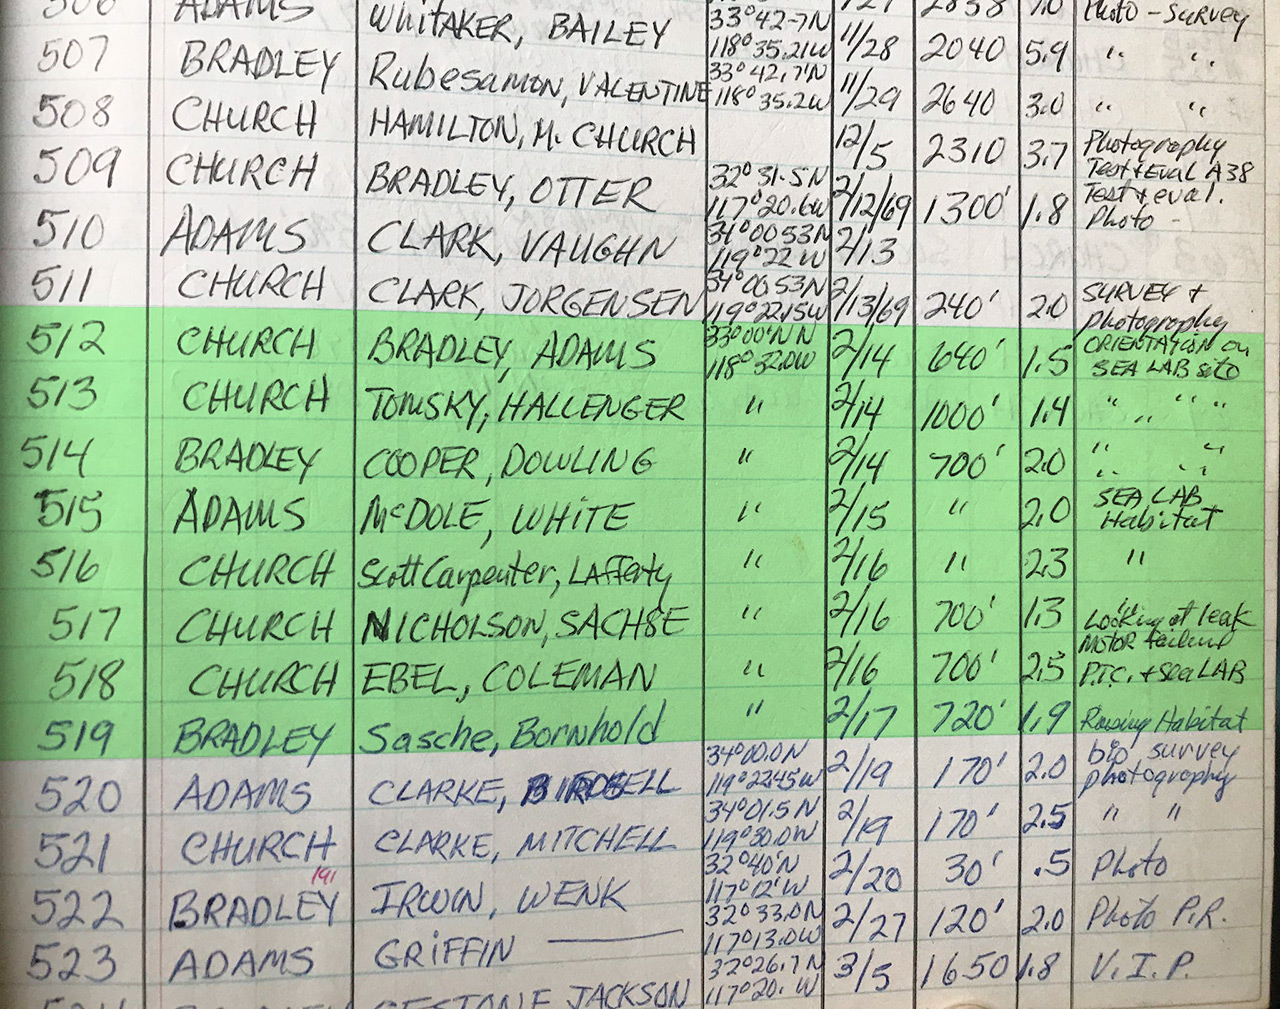 506 ADAMS WHITAKER, BAILEY 33°42.7N 118°35.21W 11/27 2838 7.0 Photo - Survey
507 BRADLEY Rubesamon, VALENTINE 33°42.7'N 118°35.2W 11/28 2040 5.9 " "
508 CHURCH HAMILTON, M. CHURCH 11/29 2640 3.0 " "
509 CHURCH BRADLEY, OTTER 32°31.5N 117°20.6W 12/5 2310 3.7 Photography Test & Eval A38
510 ADAMS CLARK, VAUGHN 34°00 53N 119°22 W 2/12/69 1300' 1.8 Test & eval. Photo -
2/13
511 CHURCH CLARK, JORGENSEN 34°00 53N 119°22.15W 2/13/69 240' 2.0 SURVEY & photography
512 CHURCH BRADLEY, ADAMS 118°32.0W 2/14 640' 1.5 ORIENTATION on SEA LAB site
513 CHURCH TOMSKY, HALLENGER " 2/14 1000' 1.4 " " " "
514 BRADLEY COOPER, DOWLING " 2/14 700' 2.0 " " " "
515 ADAMS McDOLE, WHITE " 2/15 " 2.0 SEA LAB Habitat
516 CHURCH Scott Carpenter, Lafferty " 2/16 " 2.3 "
517 CHURCH NICHOLSON, SACHSE " 2/16 700' 1.3 Looking at leak Motor failure
518 CHURCH EBEL, COLEMAN " 2/16 700' 2.5 P.T.C. & Sea LAB
519 BRADLEY Sasche, Bornhold " 2/17 720' 1.9 Raising Habitat
520 ADAMS CLARKE, BIRDSELL 34°00.0N 119°22.45W 2/19 170' 2.0 bio survey photography
521 CHURCH CLARKE, MITCHELL 34°01.5N 119°30.0W 2/19 170' 2.5 " "
191
522 BRADLEY IRWIN, WENK 32°40'N 117°12'W 2/20 30' .5 Photo
523 ADAMS GRIFFIN 32°33.0N 117°13.0W 2/27 120' 2.0 Photo P.R.
32°26.7N 117°20. W 3/5 1650 1.8 V.I.P.
524 BRADLEY JACKSON